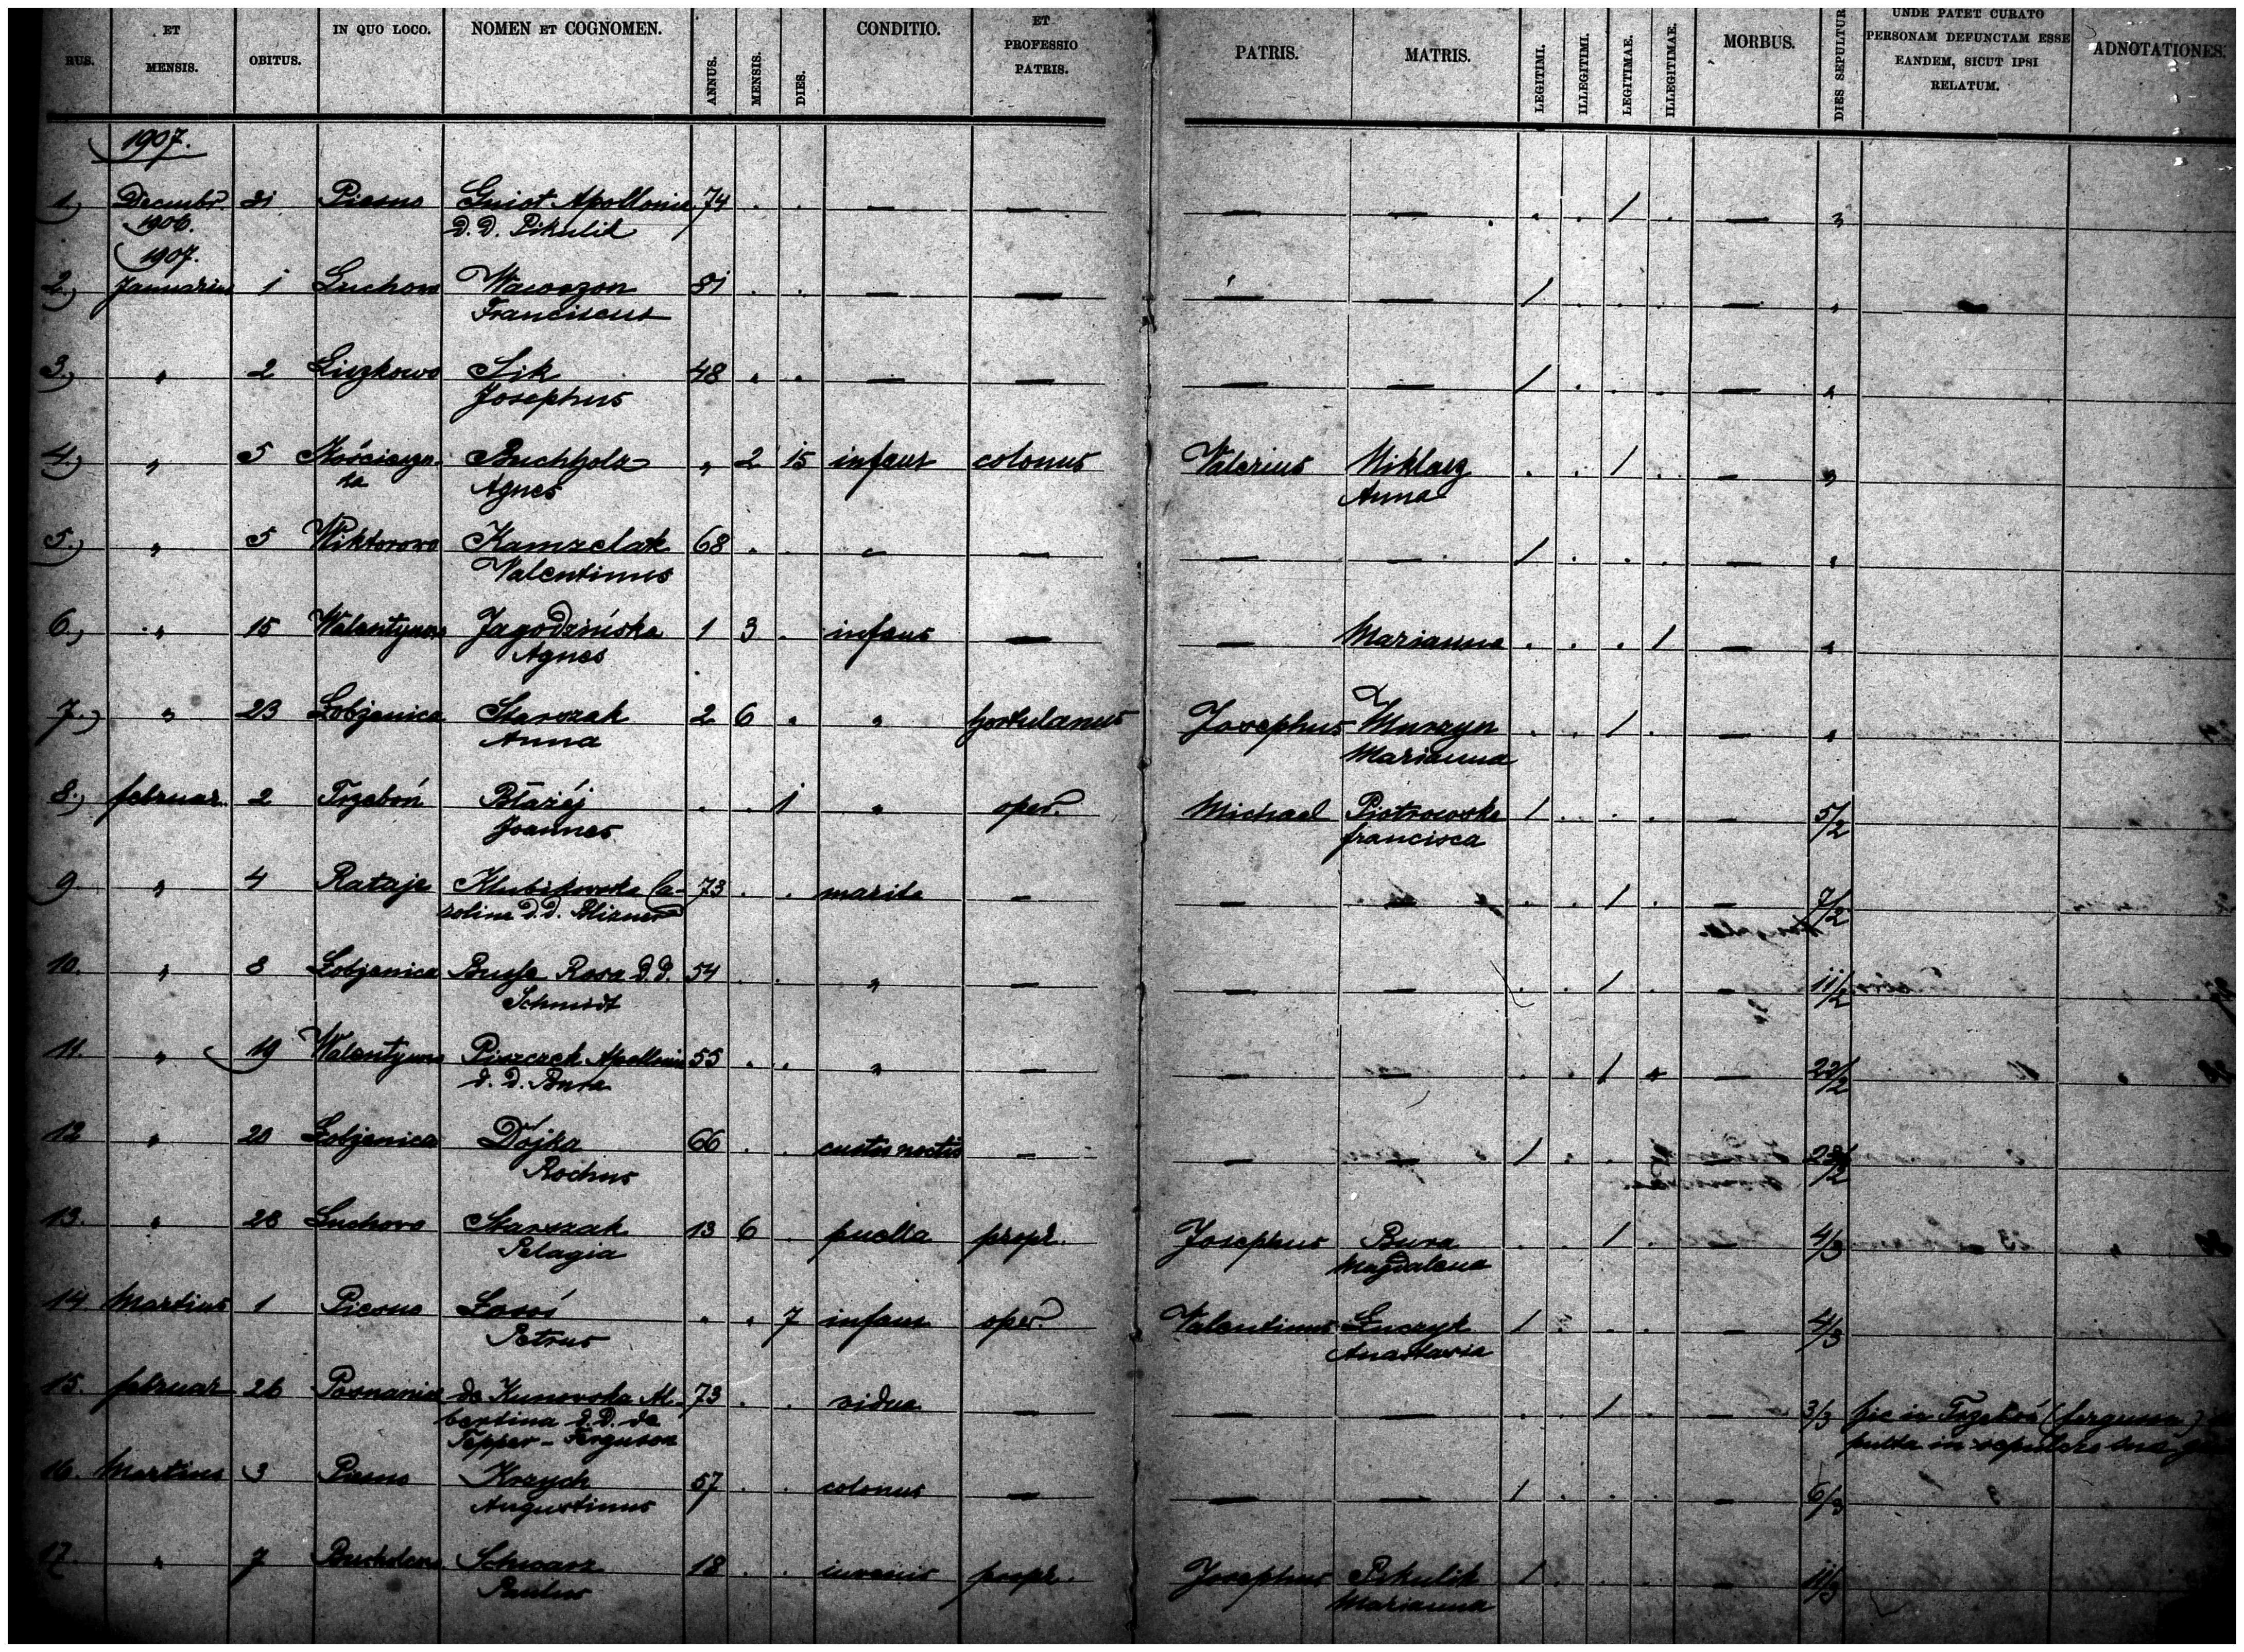 RUS. ET MENSIS. OBITUS. IN QUO LOCO. NOMEN ET COGNOMEN. ANNUS. MENSIS. DIES. CONDITIO. ET PROFESSIO PATRIS. PATRIS. MATRIS. LEGITIMI. ILLEGITIMI. LEGITIMAE. ILLEGITIMAE. MORBUS. DIES SEPULTUR UNDE PATET CURATO PERSONAM DEFUNCTAM ESSE EANDEM, SICUT IPSI RELATUM. ADNOTATIONES.
1907.
1) Decembr. 31 Piesno Gniot Apollonia 74 . . — — — — . . 1 . — "
1906. D. D. Pikulik
1907.
2) Januarius 1 Luchowo Wawrzon 81 . . — — — — 1 . . . — "
Franciscus
3.) " 2 Liszkowo Sik 48 . . — — — — 1 . . . — "
Josephus
4.) " 5 Kościerzy- Buchholz " 2 15 infans colonus Valerius Niklasz . . 1 . — "
na Agnes Anna
5.) " 5 Wiktorowo Kamzelak 68 . . — — — — 1 . . . — "
Valentinus
6.) " 15 Walentynowo Jagodzińska 1 3 . infans — — Marianna . . . 1 — "
Agnes
7.) " 23 Łobżenica Starszak 2 6 . " hortulanus Josephus Murzyn . . 1 . — "
Anna Marianna
8.) februar. 2 Trzeboń Błażéj . . 1 " oper. Michael Piotrowska 1 . . . — 5/2
Joannes francisca
9 " 4 Rataje Klubikowska Ca- 73 . . marita — — — . . 1 . — 7/2
rolina d. d.
10. " 8 Łobżenica Rosa d. d. 54 . . " — — . . 1 . — 11/2
Schmidt
11. " 19 Walentynowo Piszczek Apollonia 55 . . " — — — . . 1 . — 22/2
d. d. Bura
12 " 20 Łobżenica Dójka 66 . . custos noctis — — — 1 . . — 23/2
Rochus
13. " 28 Luchowo Starszak 13 6 . puella propr. Josephus Bura . . 1 . — 4/3
Pelagia Magdalena
14 Martius 1 Piesno Łosoś . . 7 infans oper. Valentinus Łuczyk 1 . . . — 4/3
Petrus Anastasia
15. februar 26 Posnania de Kunowska Al- 73 . . vidua — — — . . 1 . — 3/3 hic in Trzeboń (ferguson)
bertina d. d. de pulta in sepulcro
Tepper - Ferguson
16. Martius 3 Piesno Krzych 57 . . colonus — — — 1 . . . — 6/3
Augustinus
17. " 7 Schwarz 18 . . iuvenis propr. Josephus Pikulik 1 . . . — 11/3
Paulus Marianna